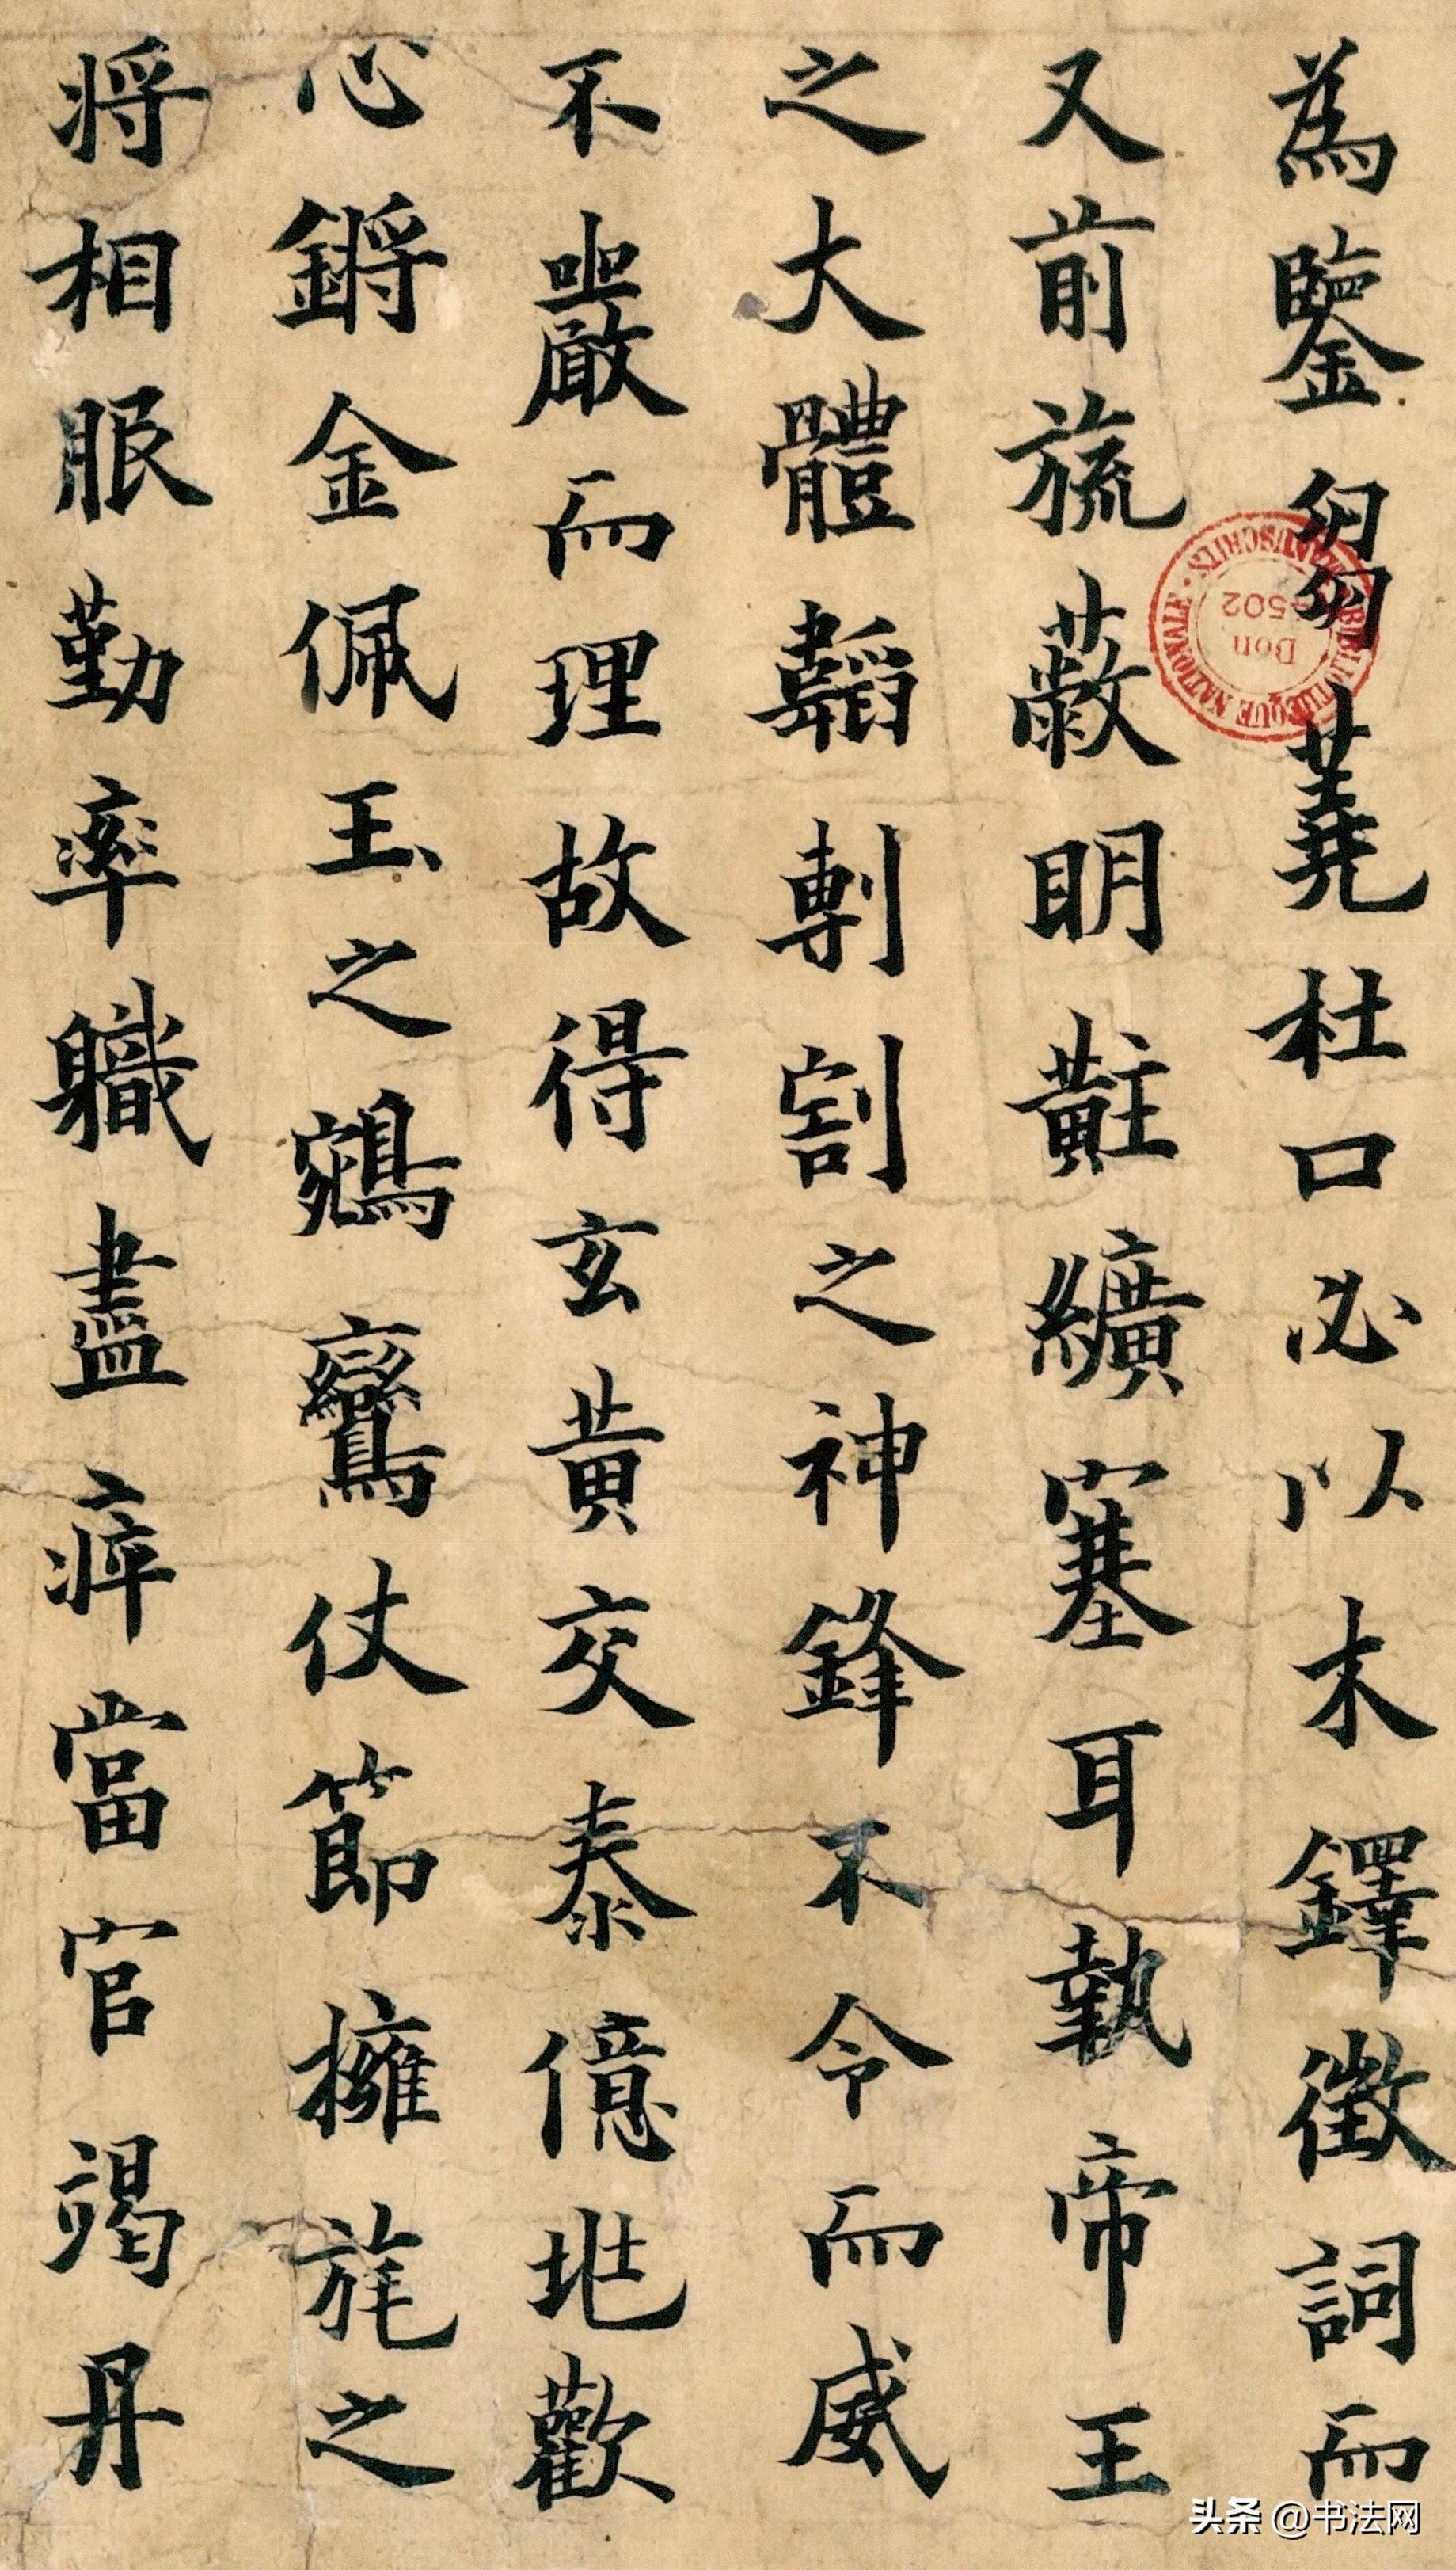 為鑒芻蕘杜口必以木鐸徵詞而
又前旒蔽明黈纊塞耳執帝王
之大體韜剸割之神鋒不令而威
不嚴而理故得玄黃交泰億兆歡
心鏘金佩玉之鵷鸞仗節擁旄之
將相服勤率職盡瘁當官竭丹
BIBLIOTHEQUE NATIONALE MANUSCRITS
Don
4502
头条 @书法网